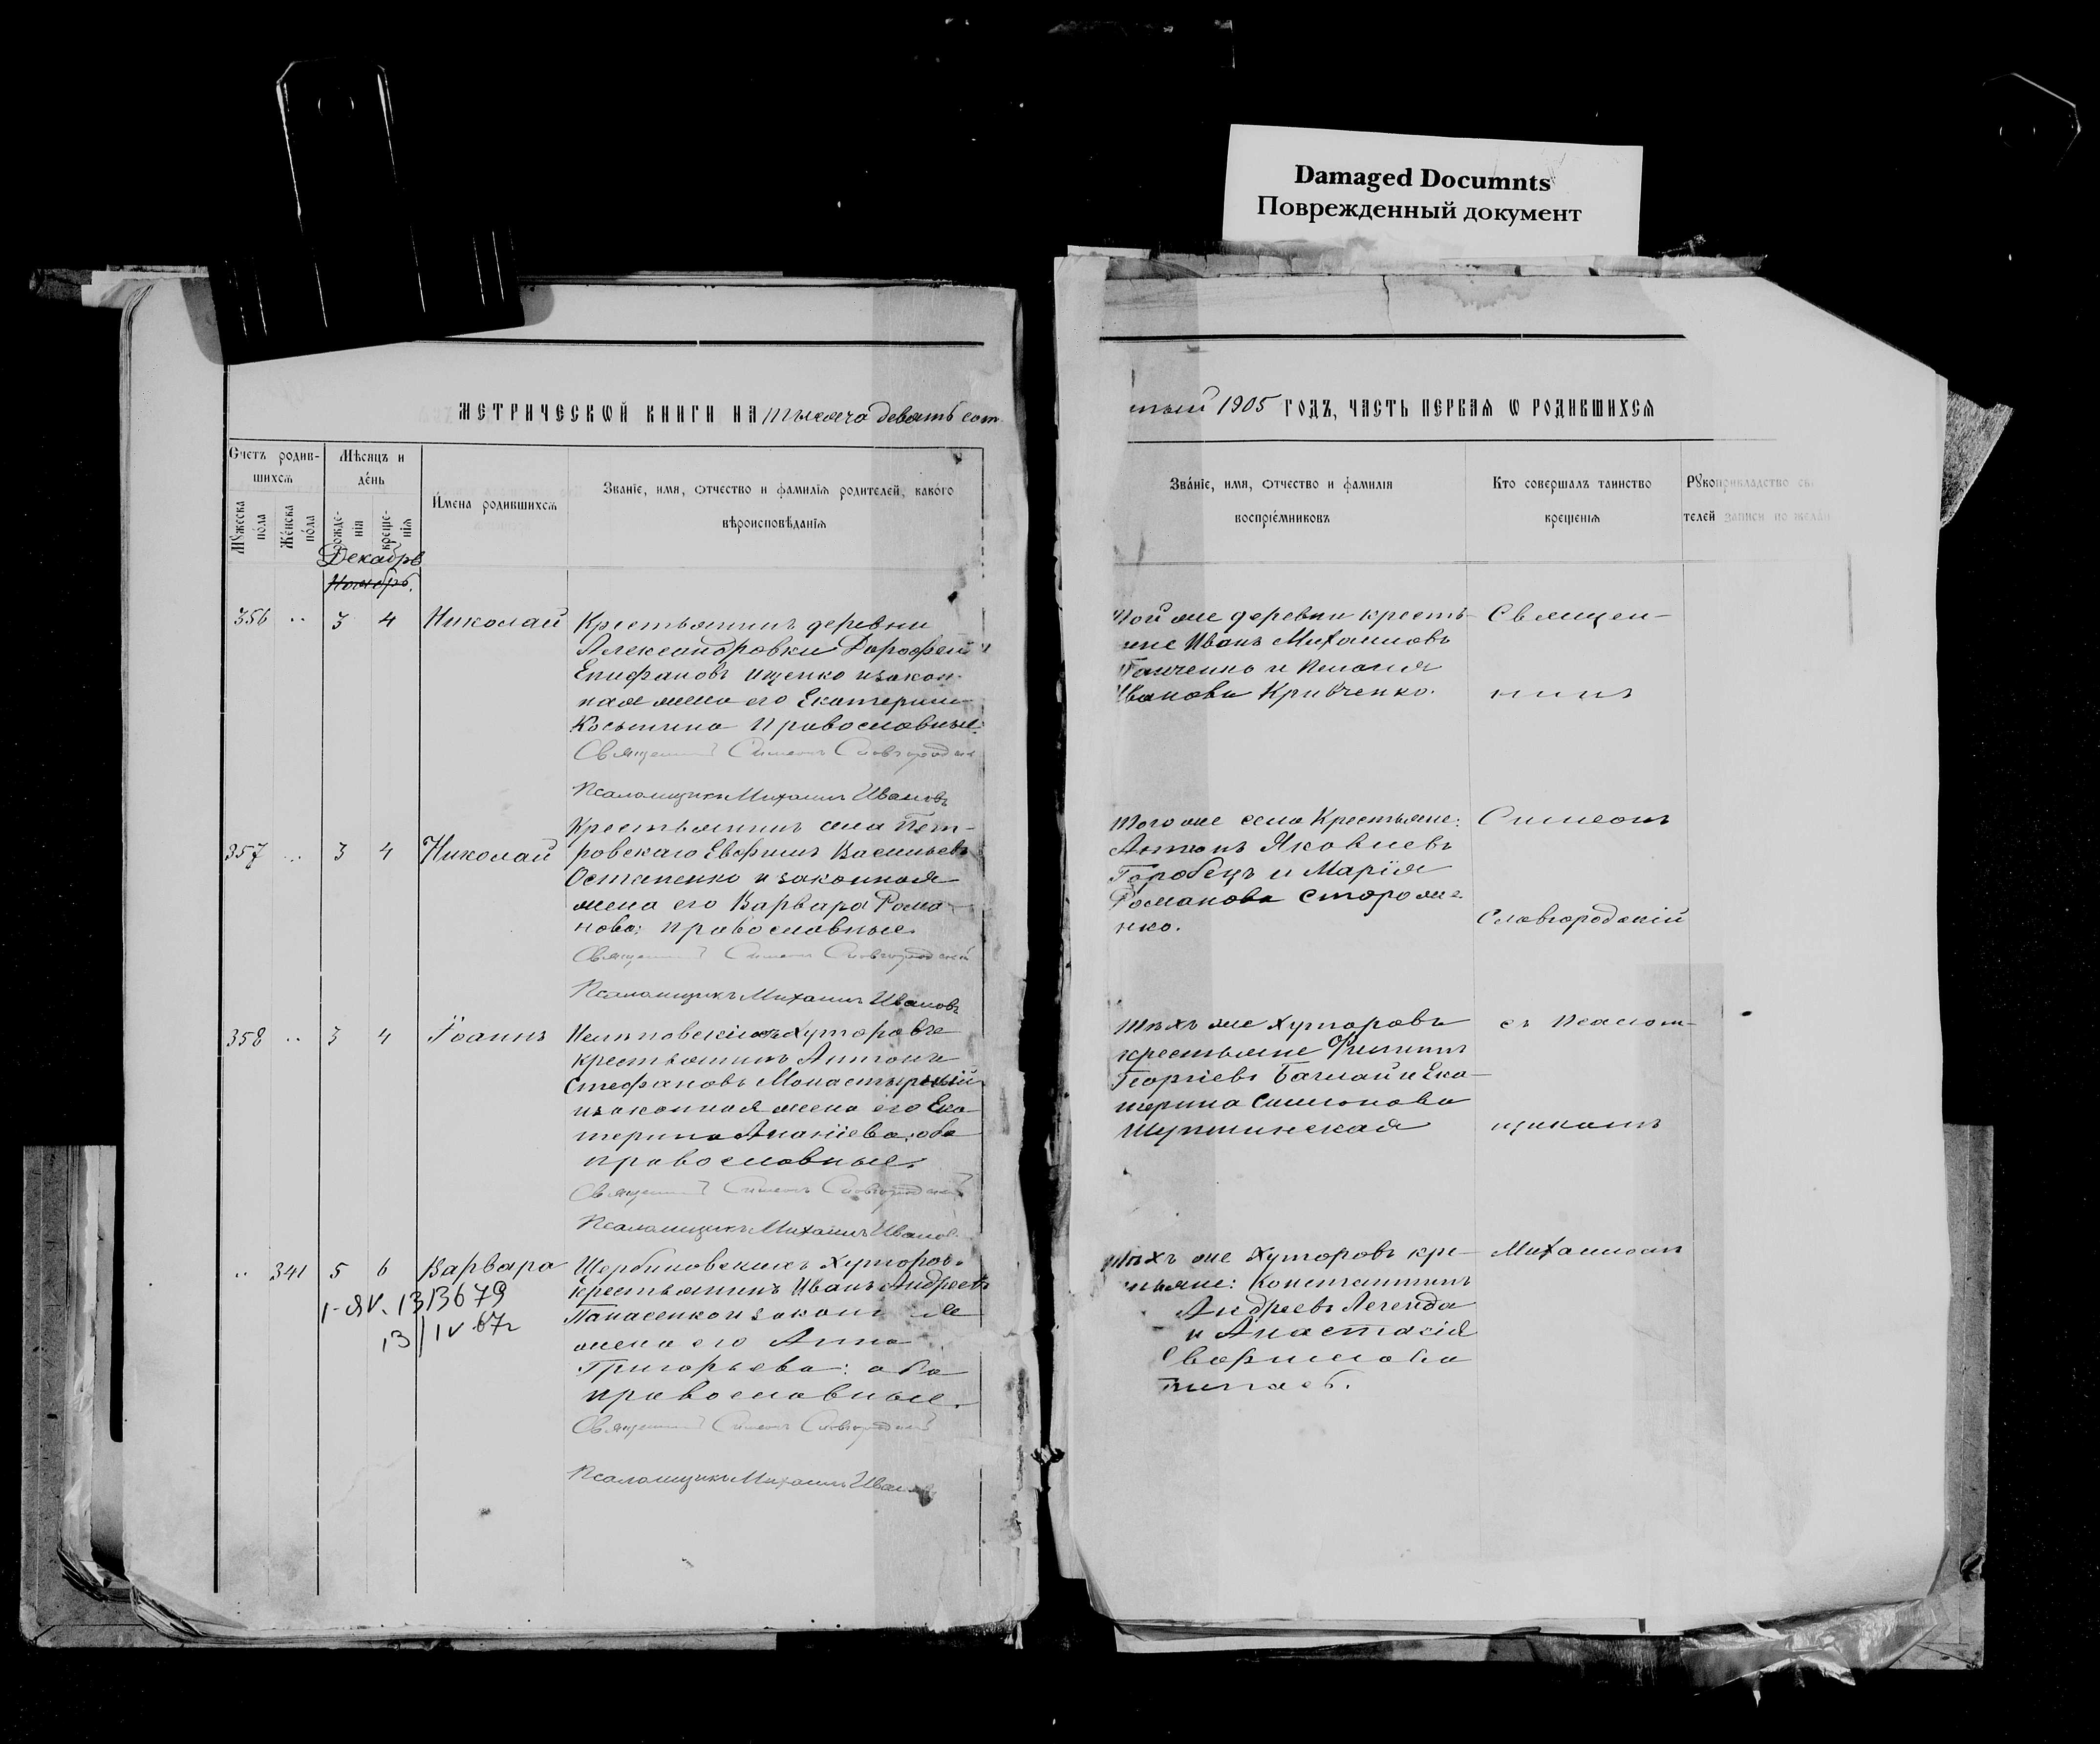 Damaged Documnts
Поврежденный документ
МЕТРИЧЕСКОЙ КНИГИ НА тысяча девятьсот
1905 ГОДЪ, ЧАСТЬ ПЕРВАЯ Ѡ РОДИВШИХСЯ
Счетъ родив-
шихся
Мужеска пола
Женска пола
Мѣсяцъ и
день
рожде-
нія
креще-
нія
Имена родившихся
Званіе, имя, отчество и фамилія родителей, какого
вѣроисповѣданія
Званіе, имя, отчество и фамилія
воспріемниковъ
Кто совершалъ таинство
крещенія
Рукоприкладство
телей записи по
Декабрь
Ноябрь.
356 .. 3 4 Николай
Крестьянинъ деревни
Александровки Дорофей
Епифановъ Ищенко и закон-
ная жена его Екатерина
Косьмина Православные.
Священникъ Симеонъ Славгородскій
Псаломщикъ Михаилъ Ивановъ
Той же деревни кресть-
яне Иванъ Михаиловъ
Ганченко и
Иванова Кривченко.
Священ-
никъ
357 .. 3 4 Николай
Крестьянинъ села Пет-
ровскаго Евфимъ Васильевъ
Остапенко и законная
жена его Варвара Рома-
нова: православные.
Священникъ Симеонъ Славгородскій
Псаломщикъ Михаилъ Ивановъ
Того же села Крестьяне:
Антонъ Яковлевъ
Горобецъ и Марія
Романова Стороже-
нко.
Симеонъ
Славгородскій
358 .. 3 4 Іоаннъ
Хуторовъ
крестьянинъ Антонъ
Стефановъ Монастырный
и законная жена его Ека-
терина Ананіева, оба
православные.
Священникъ Симеонъ Славгородскій
Псаломщикъ Михаилъ Ивановъ
Тѣхъ же Хуторовъ
крестьяне Филиппъ
Георгіевъ Баглай и Ека-
терина Симеонова
съ Псалом-
щикомъ
.. 341 5 6 Варвара
13/IV 67г
Щербиновскихъ Хуторовъ
крестьянинъ Иванъ Андреевъ
Панасенко и законная
жена его Анна
Григорьева: оба
православные.
Священникъ Симеонъ Славгородскій
Псаломщикъ Михаилъ Ивановъ
Тѣхъ же Хуторовъ кре-
стьяне: Константинъ
Андреевъ Легенда
и Анастасія
Михаиломъ